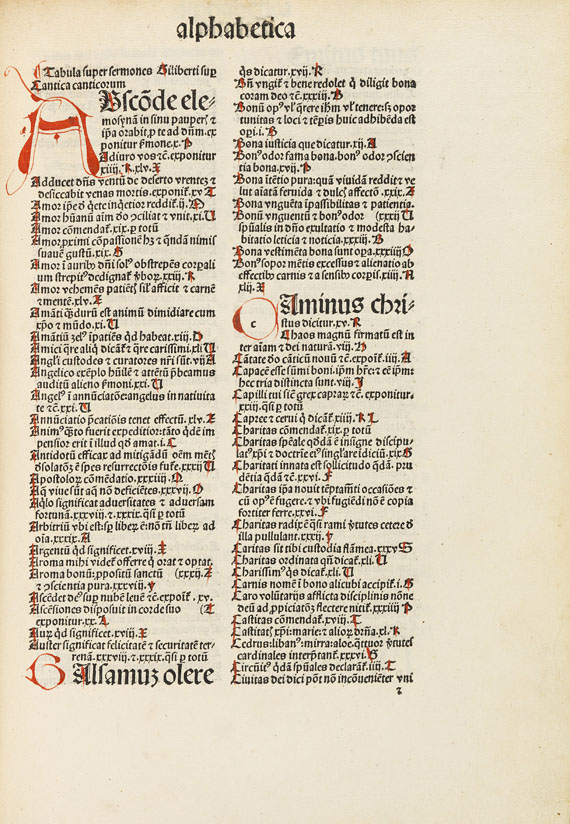 alphabetica
Tabula super sermones Giliberti sup
Cantica canticorum
ABscōde ele-
mosynā in sinu pauperꝭ ⁊
ip̄a orabit ꝓ te ad dn̄m.ex
ponitur ẜmone.x. P
Adiuro vos ⁊c̄.exponitur
xiiij.K.xlv.X
Adducet dn̄s ventū de deserto vrentez ⁊
desiccabit venas mortis.exponit᷑.xv T
Amor ip̄e d̓ q̄te inq̄etior reddit᷑.ij.D
Amor hūanū aīm do ꝯciliat ⁊ vnit.xi.U
Amor cōmendat᷑.xix.ꝑ totū
Amor ꝓximi cōpassionē hꝫ ⁊ q̄ndā nimis
suauē gustū.xix.S
Amor ī aurib᷒ dn̄i sol᷒ obstrepēs corꝑali
um strepit᷒ dedignat᷑ ꝟboꝝ.xxiij.K
Amor vehemēs patiēt᷑ sil᷒ afficit ⁊ carnē
⁊ mentē.xlv.Z
Amāti q̄si durū est animū dimidiare cum
xp̄o ⁊ mūdo.xi.U
Amātiū zel᷒ īpatiēs qd habeat.xiij.D
Amici q̄re aliq̄ dicāt᷑ ⁊ q̄re carissimi.xli U
Angl̓i custodes ⁊ curatores nr̄i sūt.vij A
Angelico exēplo hūilē ⁊ attētū p̄beamus
auditū alieno ẜmoni.xxi.U
Angel᷒ ī annūciatōe euangelus in natiuita
te ⁊c̄.xxi.U
Annūciatio p̄catiōis tener effectū.xlv.Z
Anim᷒ q̄to fuerit expeditior:tāto qdē im
pensior erit ī illud qd amat.i.C
Antidotū efficax ad mitigādū oēm mētꝭ
d̓solatōꝫ ē spes resurrectōis futᵉ.xxxij U
Apostoloꝝ cōmēdatio.xxxiiij.O
Aq̄ viue sūt aq̄ nō deficiētes.xxxvij.O
Aq̓lo significat aduersitates ⁊ aduersam
fortunā.xxxviij.⁊ xxxix.q̄si ꝑ totū
Arbitriū vbi est:ip̄ liber̄ ē:nō tn̄ liber̄ ad
oīa.xxxix.A
Argentū qd significet.xviij.X
Aroma mihi videt᷑ offerre q̓ orat ⁊ optat.
Aroma bonū:ꝓpositū sanctū (xxxij.Z
⁊ ꝯscientia pura.xxxviij.y
Ascēdet de᷒ sup nubē leuē ⁊c̄.expoīt᷑.xv.
Ascēsiones disposuit in corde suo (T
exponitur.xx.L
Aurꝫ qd significet.xviij.X
Auster significat felicitatē ⁊ securitatē ter-
renā.xxxviij.⁊ xxxix.q̄si ꝑ totū
BAlsamuꝫ olere
q̄s dicatur.xvij.K
Bn̄ vngit᷑ ⁊ bene redolet q̓ diligit bona
coram deo ⁊c̄.xxxiij.B
Bonū op᷒ vl̓ q̄rere ih̓m vl̓ teneres:opor
tunitas ⁊ loci ⁊ tēpis huic adhibēda est
opi.i.B
Bona iusticia que dicatur.xij.A
Bon᷒ odor fama bona. bon᷒ odor ꝯscien
tia bona.xvij.P
Bona ītētio pura:quā viuidā reddit ⁊ ve
lut aīatā feruida ⁊ dulc̓ affectō.xxix.Z
Bona vnguēta īpassibilitas ⁊ patientia.
Bonū vnguentū ⁊ bon᷒ odor (xxxij U
sp̄ualis in dn̄o exultatio ⁊ modesta ha
bitatio leticia ⁊ noticia.xxxiij.B
Bona vestimēta bona sunt oꝑa.xxxiiij O
Bon᷒ sopor mētis excessus ⁊ alienatio ab
effectib᷒ carnis ⁊ a sensib᷒ corꝑis.xliij.N
xlij.X
CAminus chri-
stus dicitur.xv.K
Chaos magnū firmatū est in
ter aīam ⁊ dei naturā.viij.D
Cātate dn̄o cāticū nouū ⁊c̄.expoīt᷑.iiij.A
Capacē esse sūmi boni.ip̄m hr̄e:⁊ cē ip̄m:
hec tria distincta sunt.viij.J
Capilli tui sic̄ grex capraꝝ ⁊c̄.exponitur.
xxiij.q̄si ꝑ totū
Capree ⁊ cerui q̓ dicāt᷑.xiiij.K L
Charitas cōmēdat᷑.xix.ꝑ totū
Charitas sp̄eāle qddā ē insigne discipu-
lat᷒ xp̄i ⁊ doctrīe ei᷒ singl̓are idiciū.xix S
Charitati innata est sollicitudo q̄dā. pru
dētia q̄dā ⁊c̄.xxvi.F
Charitas ip̄a nouit tēptamti occasiōes ⁊
cū op᷒ ē fugere ⁊ vbi fugiēdi nō ē copia
fortiter ferre.xxvi.F
Charitas radix ē q̄si rami ꝟtutes cetere d̓
illa pullulant.xxxij.y
Caritas sit tibi custodia flāmea.xxxv S
Charitas ordinata qn̄ dicat᷑.xli.U
Charissim᷒ q̄s dicat᷑.xli.U
Carnis nomē ī bono alicubi accipit᷑.i.S
Caro volūtarijs afflicta disciplinis nōne
deū ad ꝓpiciatōꝫ flectere nitit᷑.xxxiiij P
Castitas cōmendat᷑.xviij.T
Castitatꝭ xp̄i:marie:⁊ alioꝝ dr̄na.xl.K
Cedrus:liban᷒:mirra:aloe.q̄ttuor ꝟtutes
cardinales interp̄tant᷑.xxxvi.S
Circūit᷒ q̄dā sp̄uales declarāt᷑.iiij.T
Ciuitas dei dici pōt nō incōueniēter vni
⁊